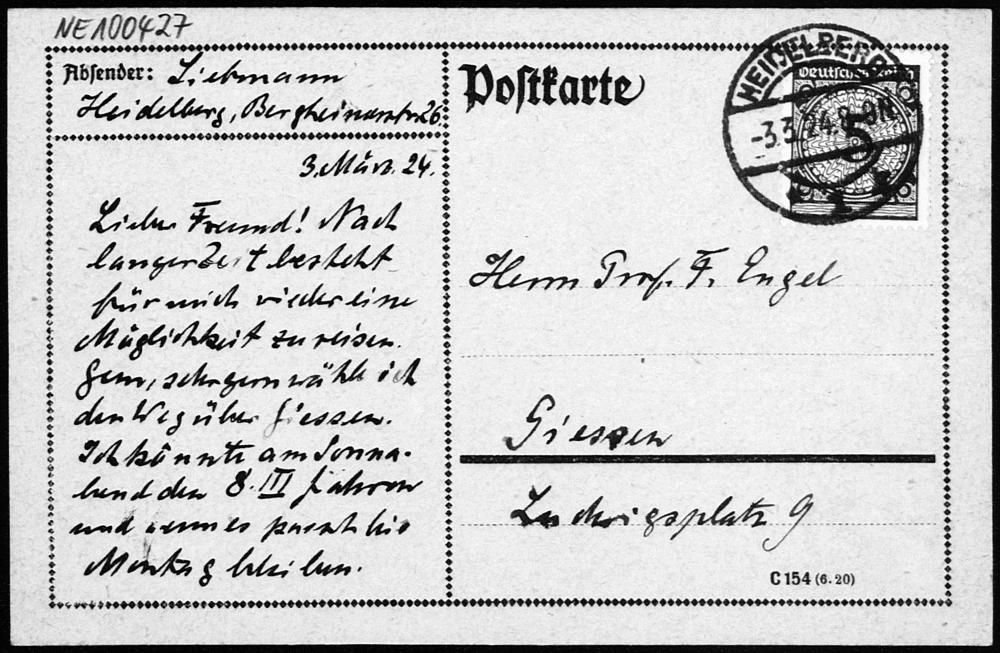 NE100427
Absender: Liebmann
Heidelberg, Bergheimerstr 26.
3. März. 24.
Lieber Freund! Nach
langer Zeit besteht
für mich wieder eine
Möglichkeit zu reisen.
Gern, sehr gern wähle ich
den Weg über Giessen.
Ich könnte am Sonna-
bend den 8. III fahren
und wenn es passt bis
Montag bleiben.
Postkarte
HEIDELBERG
-3.3.24.8-9N
1
Deutsches Reich
5
Herrn Prof. F. Engel
Giessen
Ludwigsplatz 9
C 154 (6. 20)